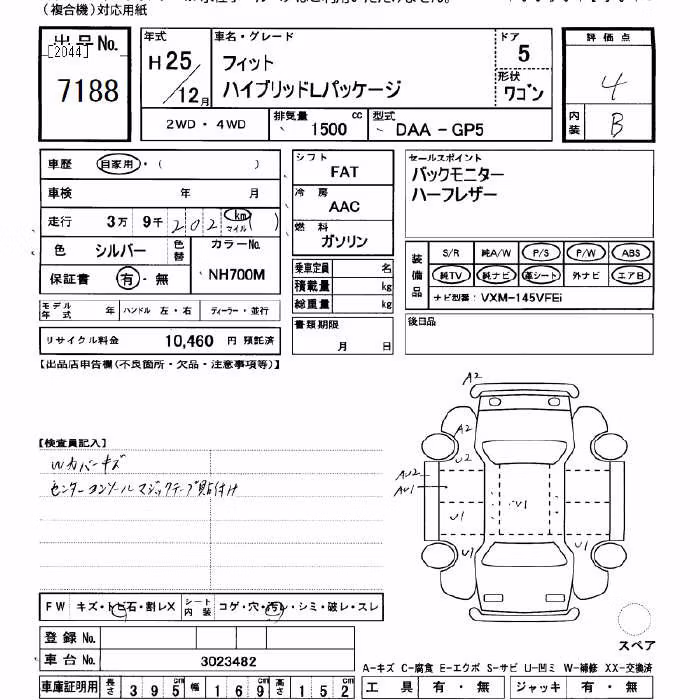 (複合機)対応用紙
出品No.
[2044]
7188
年式
H25/12月
車名・グレード
フィット
ハイブリッドLパッケージ
ドア
5
形状
ワゴン
2WD・4WD
排気量
1500 cc
型式
DAA-GP5
評価点
4
内装
B
車歴 自家用・( )
車検 年 月
走行 3万 9千 202 km マイル ( )
色 シルバー 色替 カラーNo.
NH700M
保証書 有・無
モデル年式 年 ハンドル 左・右 ディーラー・並行
リサイクル料金 10,460 円 預託済
シフト
FAT
冷房
AAC
燃料
ガソリン
乗車定員 名
積載量 kg
総重量 kg
書類期限
月 日
セールスポイント
バックモニター
ハーフレザー
装備品
S/R 純A/W P/S P/W ABS
純TV 純ナビ 革シート 外ナビ エアB
ナビ型番: VXM-145VFEi
後日品
【出品店申告欄(不良箇所・欠品・注意事項等)】
【検査員記入】
Wカバーキズ
センターコンソールマジックテープ貼付け
A2
A2
U2
AU2
AU1
U1
U1
FW キズ・トビ石・割レX シート内装 コゲ・穴・汚レ・シミ・破レ・スレ
登録No.
車台No. 3023482
車庫証明用 長さ 395cm 幅 169cm 高さ 152cm
スペア
A-キズ C-腐食 E-エクボ S-サビ U-凹ミ W-補修 XX-交換済
工具 有・無 ジャッキ 有・無